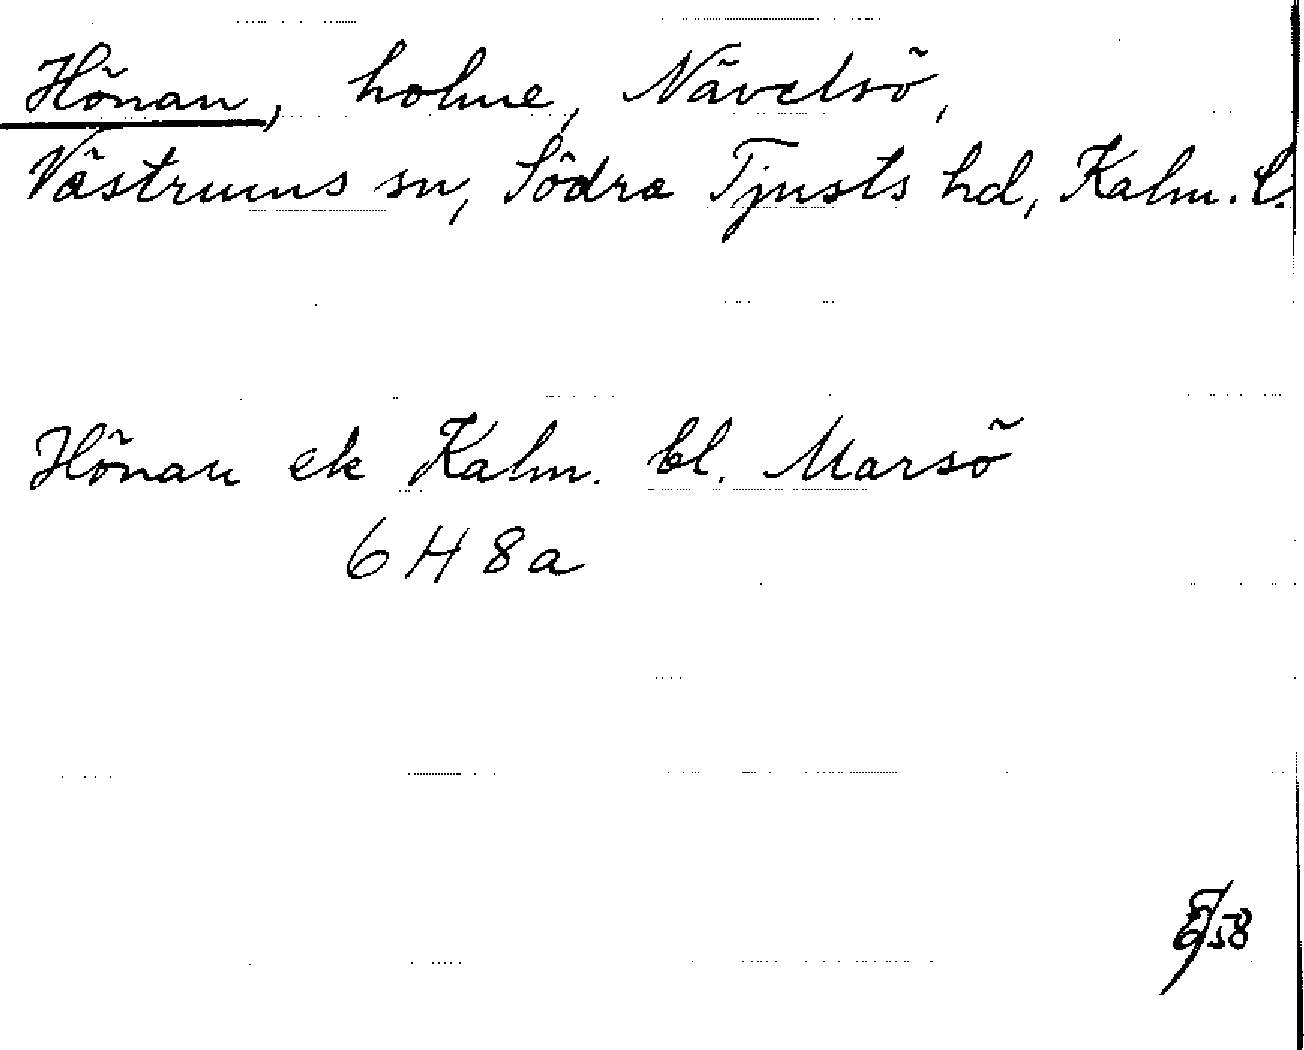 Hönan, holme, Nävelsö,
Västrums sn, Södra Tjusts hd, Kalm. l.
Hönan ek Kalm. bl. Marsö
6 H 8a